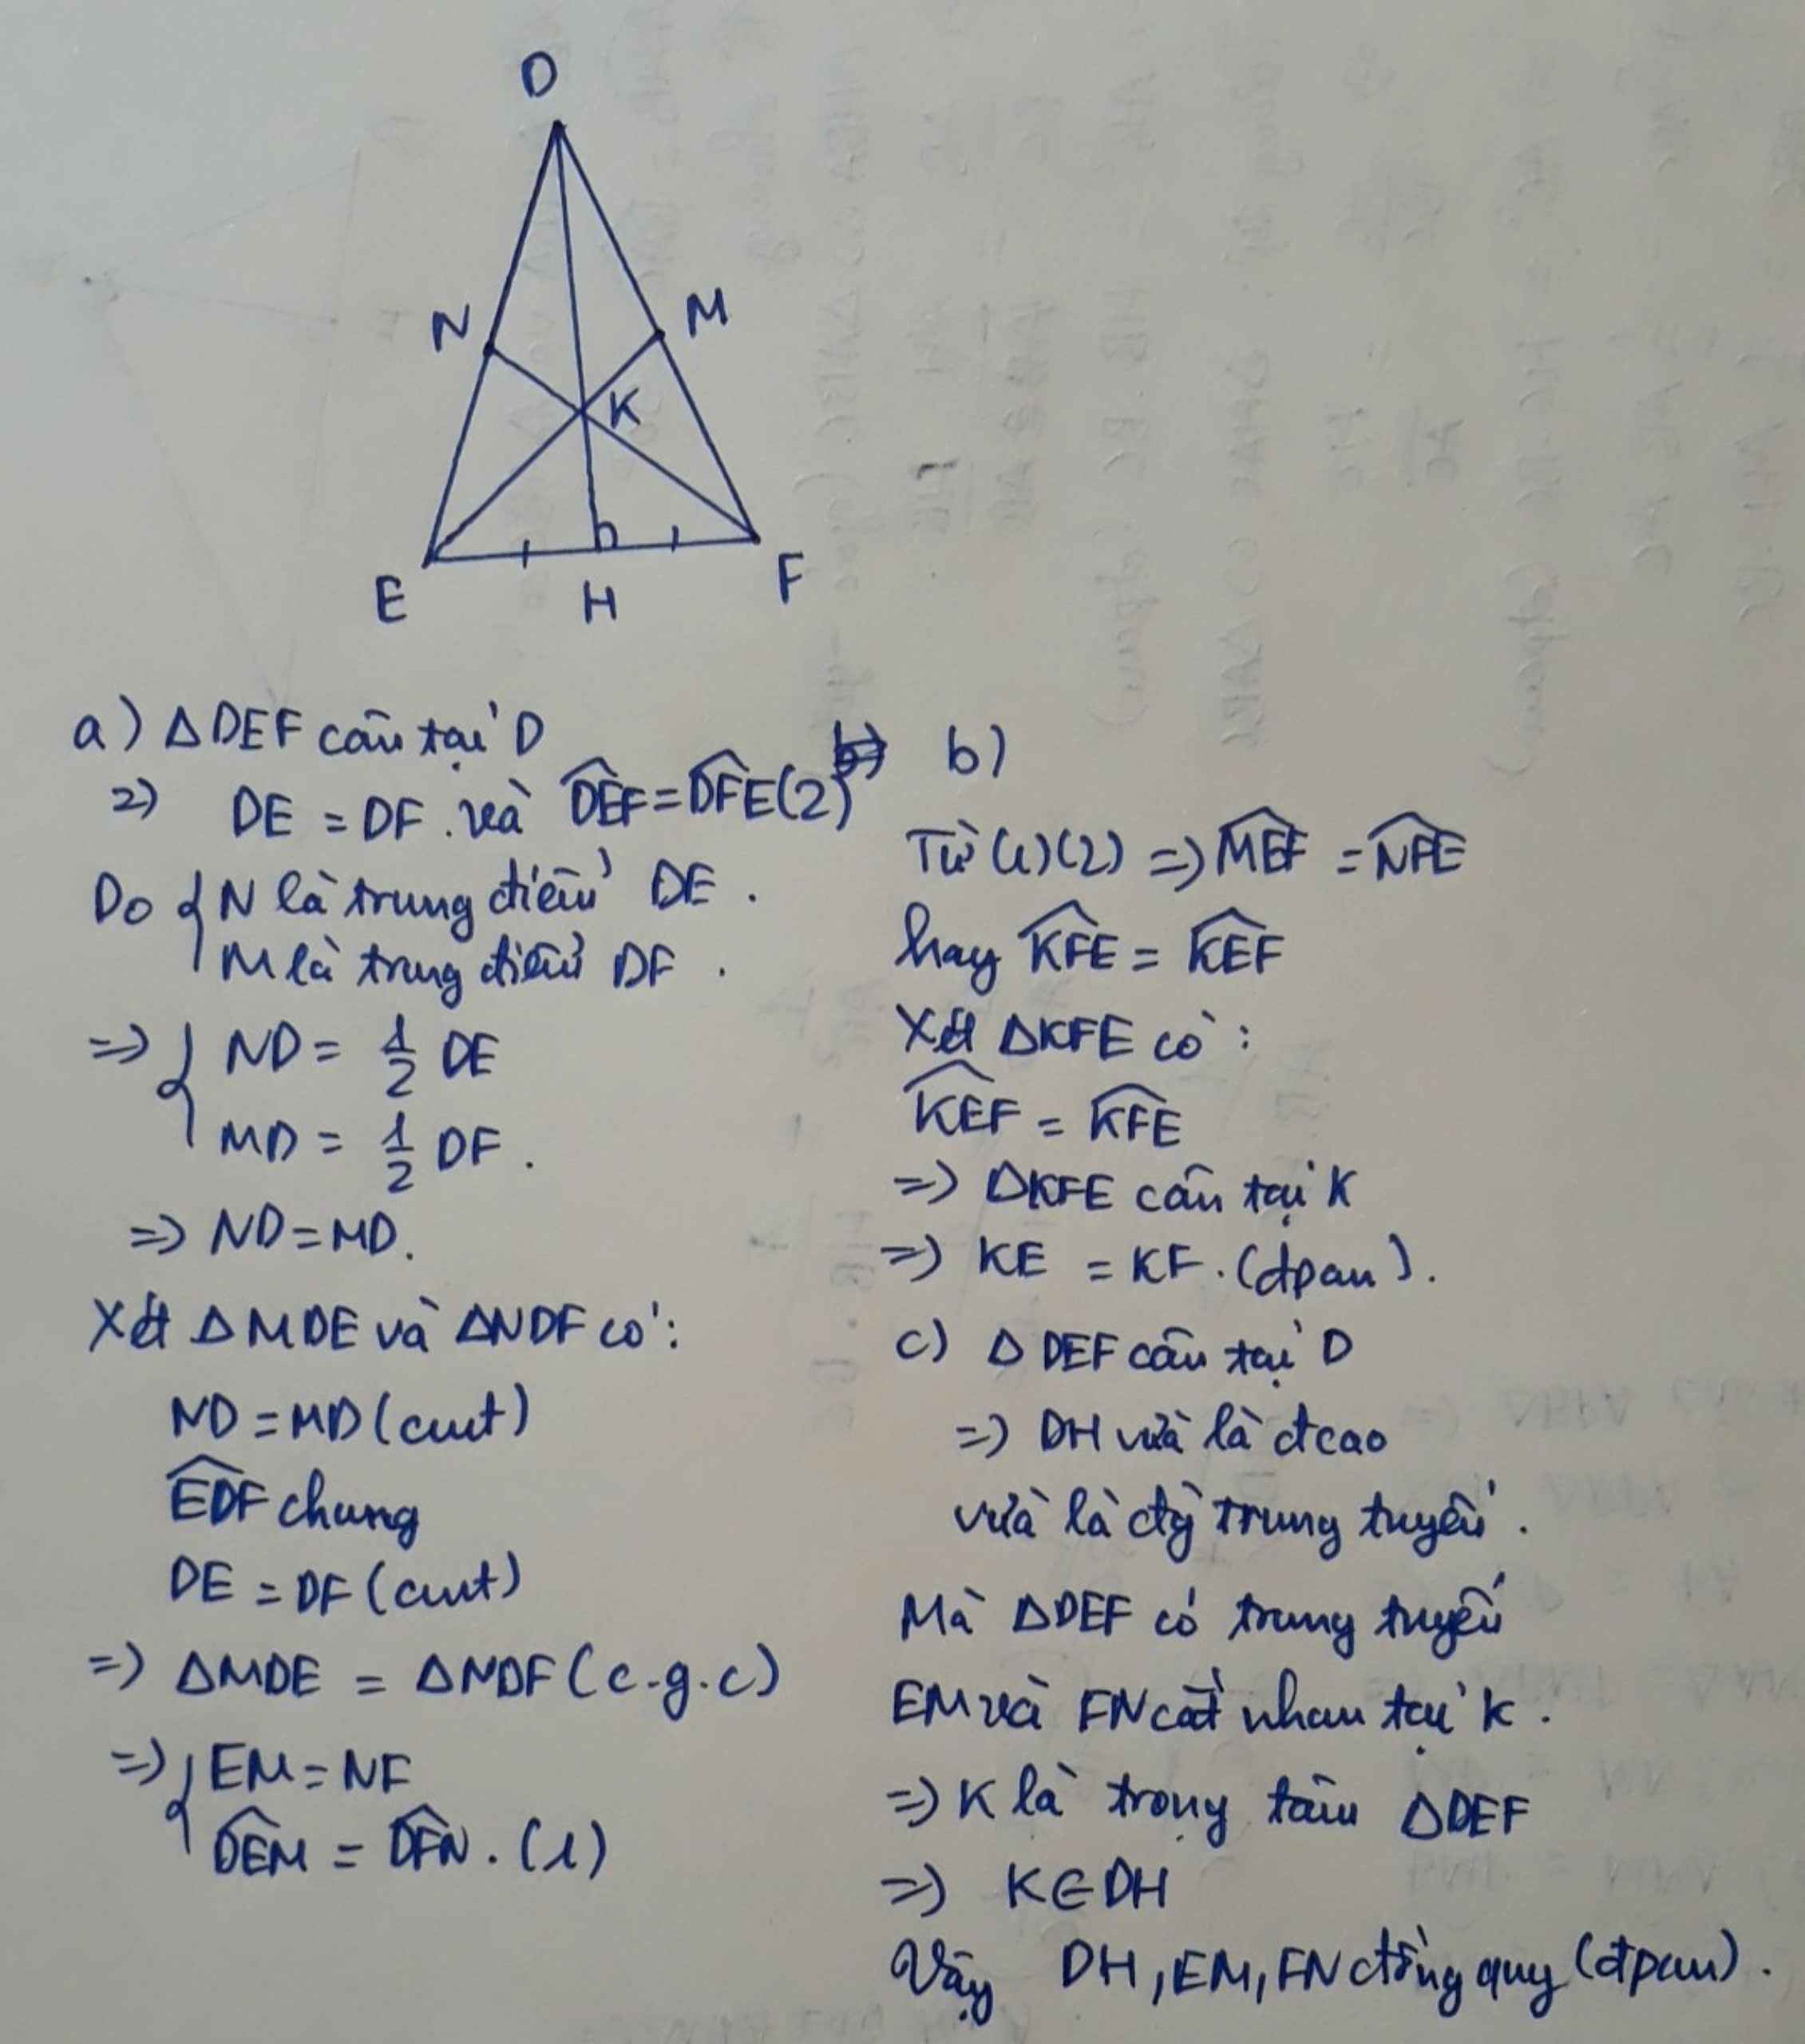 D
N
M
K
E
H
F
a) △DEF cân tại D
=> DE = DF và \widehat{DEF} = \widehat{DFE} (2)
Do { N là trung điểm DE.
M là trung điểm DF.
=> { ND = 1/2 DE
MD = 1/2 DF.
=> ND = MD.
Xét △MDE và △NDF có:
ND = MD (cmt)
\widehat{EDF} chung
DE = DF (cmt)
=> △MDE = △NDF (c.g.c)
=> { EM = NF
\widehat{DEM} = \widehat{DFN}. (1)
b)
Từ (1)(2) => \widehat{MEF} = \widehat{NFE}
hay \widehat{KFE} = \widehat{KEF}
Xét △KFE có:
\widehat{KEF} = \widehat{KFE}
=> △KFE cân tại K
=> KE = KF. (đpcm).
c) △DEF cân tại D
=> DH vừa là đcao
vừa là đg trung tuyến.
Mà △DEF có trung tuyến
EM và FN cắt nhau tại K.
=> K là trọng tâm △DEF
=> K ∈ DH
Vậy DH, EM, FN đồng quy (đpcm).